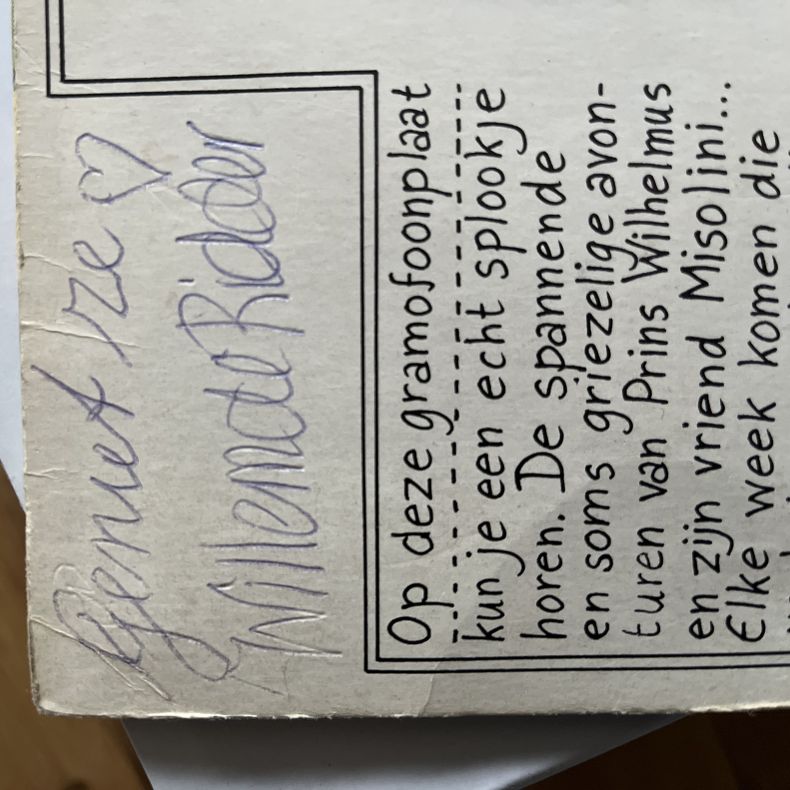 Geniet ze ♡
Willem de Ridder
Op deze gramofoonplaat
kun je een echt splookje
horen. De spannende
en soms griezelige avon-
turen van Prins Wilhelmus
en zijn vriend Misolini...
Elke week komen die